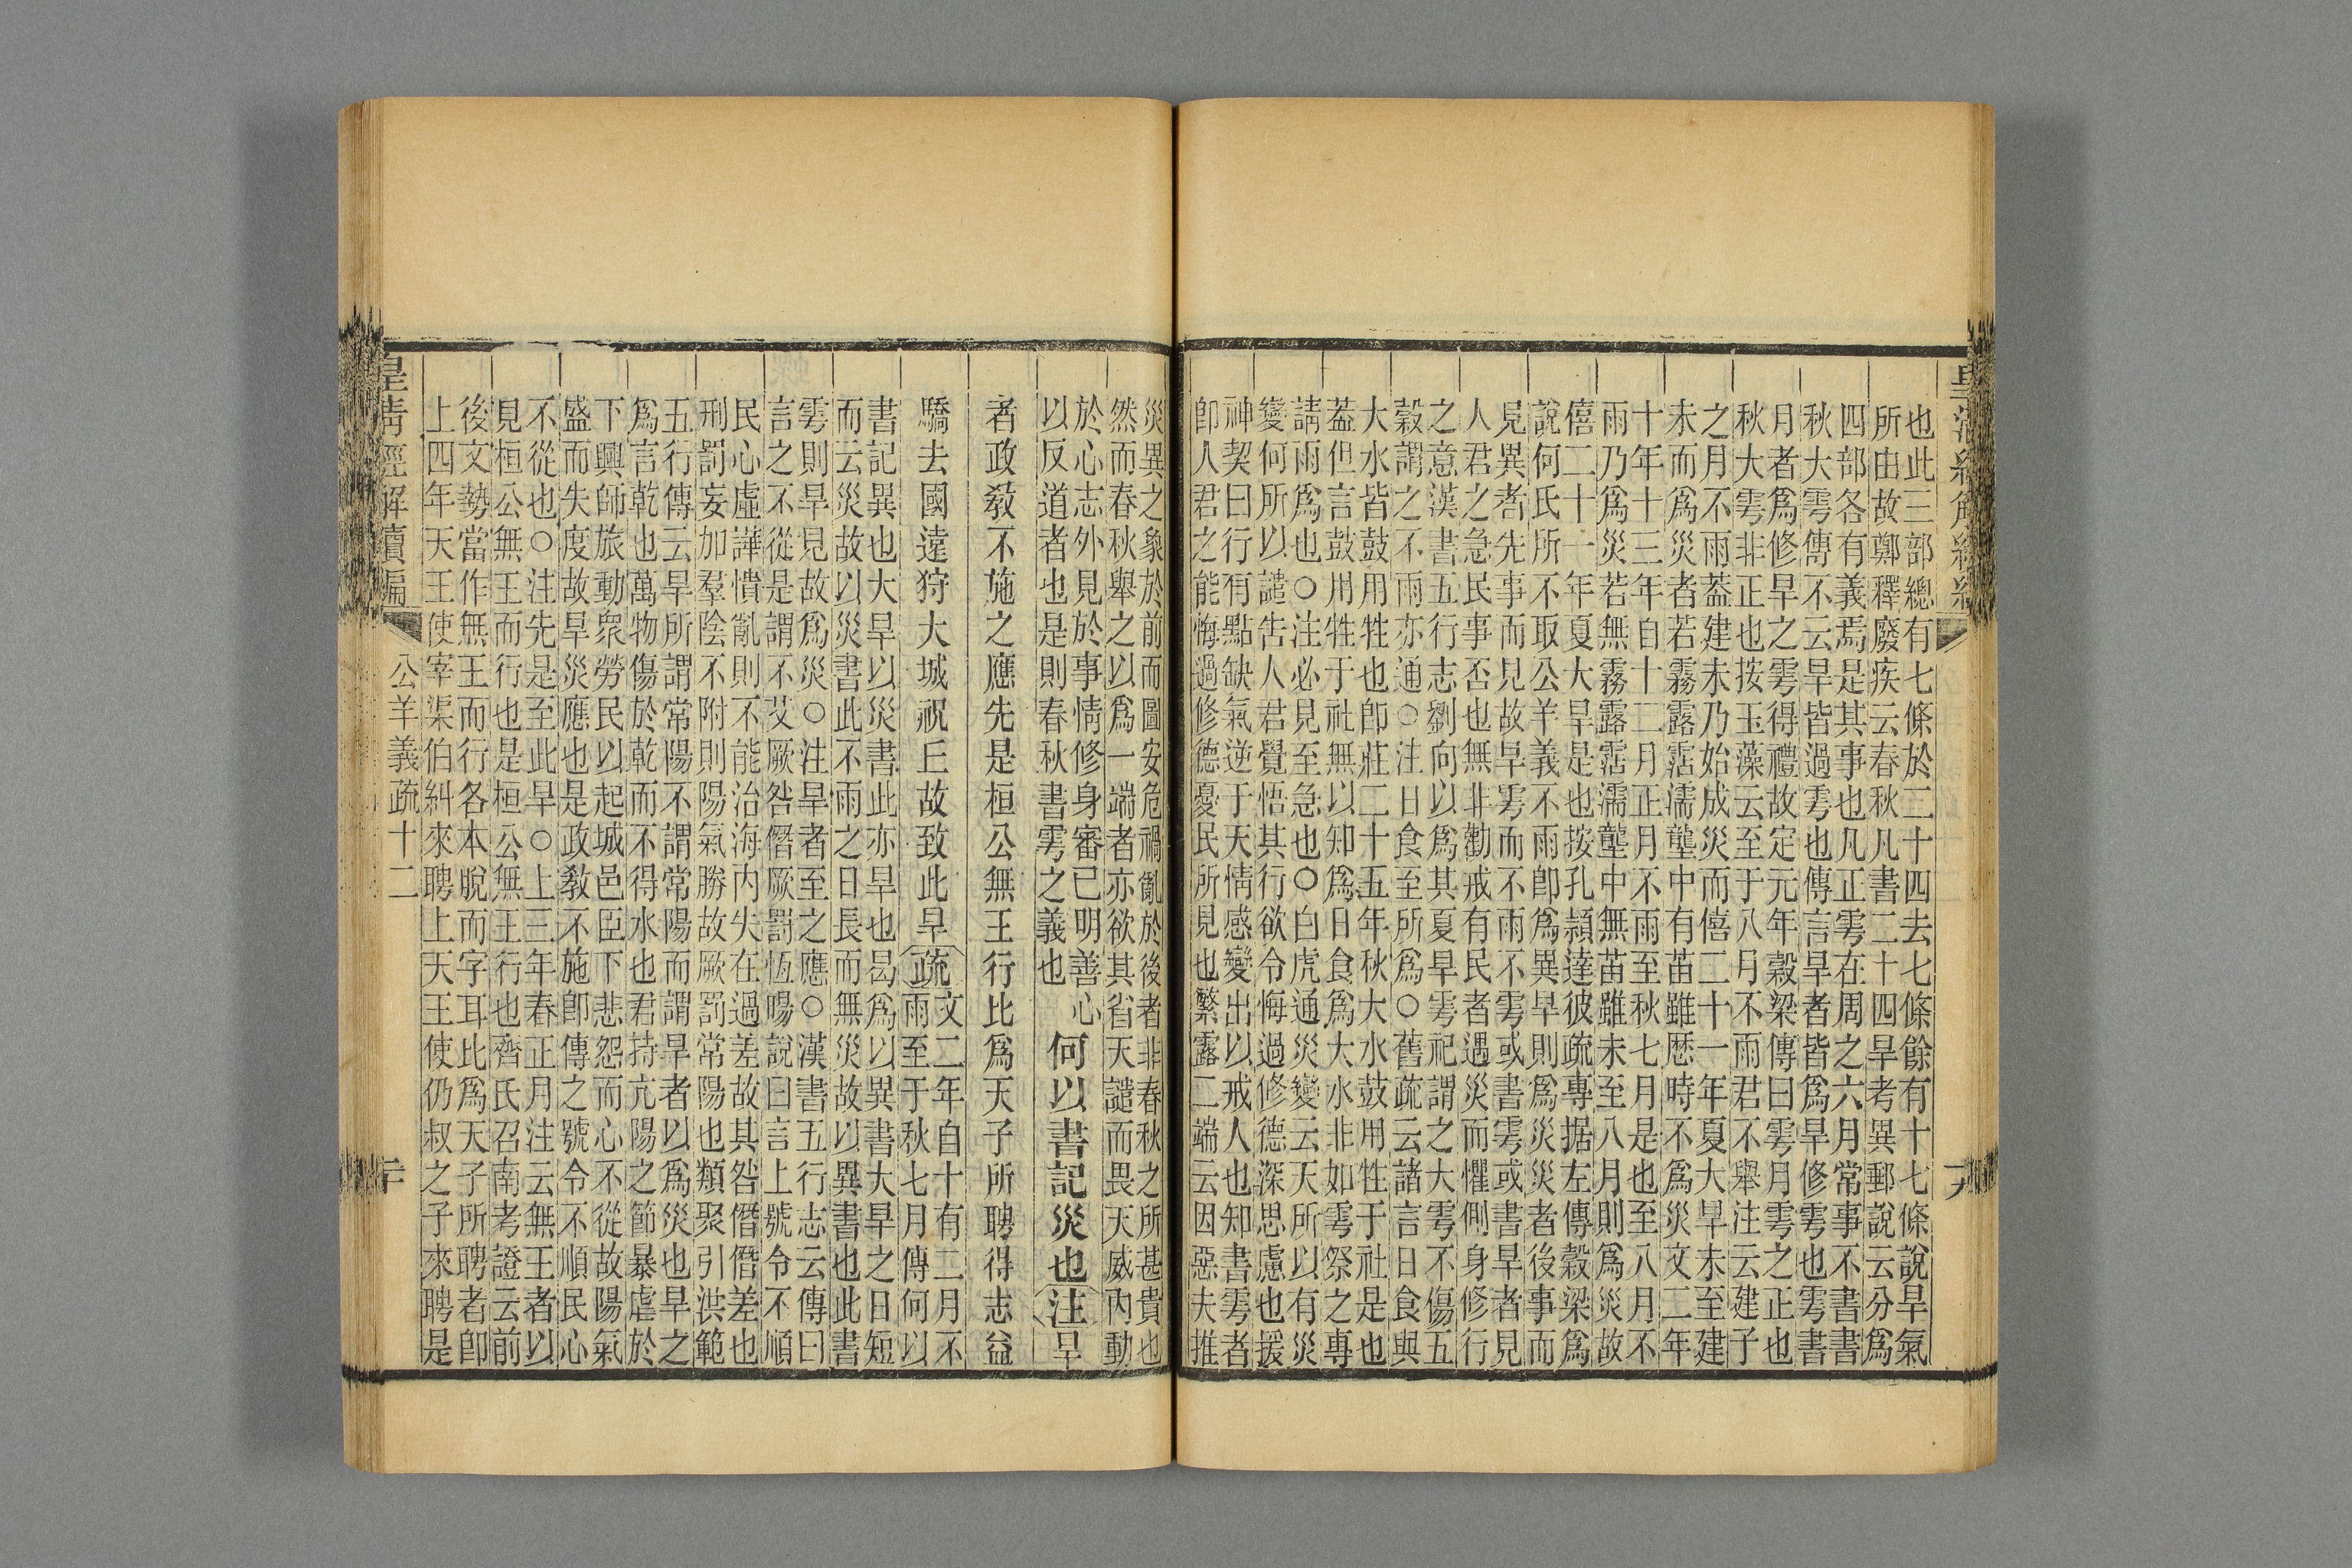 也此三部總有七條於二十四去七條餘有十七條說旱氣
所由故鄭釋廢疾云春秋凡書二十四旱考異郵說云分爲
四部各有義焉是其事也凡正雩在周之六月常事不書書
秋大雩傳不云旱皆過雩也傳言旱者皆爲旱修雩也雩書
月者爲修旱之雩得禮故定元年穀梁傳曰雩月雩之正也
秋大雩非正也按玉藻云至于八月不雨君不舉注云建子
之月不雨葢建未乃始成災而僖二十一年夏大旱未至建
未而爲災者若霧露霑濡壟中有苗雖歷時不爲災文二年
十年十三年自十二月正月不雨至秋七月是也至八月不
雨乃爲災若無霧露霑濡壟中無苗雖未至八月則爲災故
僖二十一年夏大旱是也按孔穎達彼疏專据左傳穀梁爲
說何氏所不取公羊義不雨卽爲異旱則爲災災者後事而
見異者先事而見故旱雩而不雨不雩或書雩或書旱者見
人君之急民事否也無非勸戒有民者遇災而懼側身修行
之意漢書五行志劉向以爲其夏旱雩祀謂之大雩不傷五
穀謂之不雨亦通○注日食至所爲○舊疏云諸言日食與
大水皆鼓用牲也卽莊二十五年秋大水鼓用牲于社是也
葢但言鼓用牲于社無以知爲日食爲大水非如雩祭之專
請雨爲也○注必見至急也○白虎通災變云天所以有災
變何所以譴告人君覺悟其行欲令悔過修德深思慮也援
神契曰行有點缺氣逆于天情感變出以戒人也知書雩者
卽人君之能悔過修德憂民所見也繁露二端云因惡夫推
災異之象於前而圖安危禍亂於後者非春秋之所甚貴也
然而春秋舉之以爲一端者亦欲其省天譴而畏天威內動
於心志外見於事情修身審已明善心
以反道者也是則春秋書雩之義也
何以書記災也注旱
者政敎不施之應先是桓公無王行比爲天子所聘得志益
驕去國遠狩大城祝丘故致此旱疏
文二年自十有二月不
雨至于秋七月傳何以
書記異也大旱以災書此亦旱也曷爲以異書大旱之日短
而云災故以災書此不雨之日長而無災故以異書也此書
雩則旱見故爲災○注旱者至之應○漢書五行志云傳曰
言之不從是謂不艾厥咎僭厥罰恆暘說曰言上號令不順
民心虛譁憒亂則不能治海內失在過差故其咎僭僭差也
刑罰妄加羣陰不附則陽氣勝故厥罰常陽也類聚引洪範
五行傳云旱所謂常陽不謂常陽而謂旱者以爲災也旱之
爲言乾也萬物傷於乾而不得水也君持亢陽之節暴虐於
下興師旅動衆勞民以起城邑臣下悲怨而心不從故陽氣
盛而失度故旱災應也是政敎不施卽傳之號令不順民心
不從也○注先是至此旱○上三年春正月注云無王者以
見桓公無王而行也是桓公無王行也齊氏召南考證云前
後文勢當作無王而行各本脫而字耳比爲天子所聘者卽
上四年天王使宰渠伯糾來聘上天王使仍叔之子來聘是
皇淸經解續編
公羊義疏十二